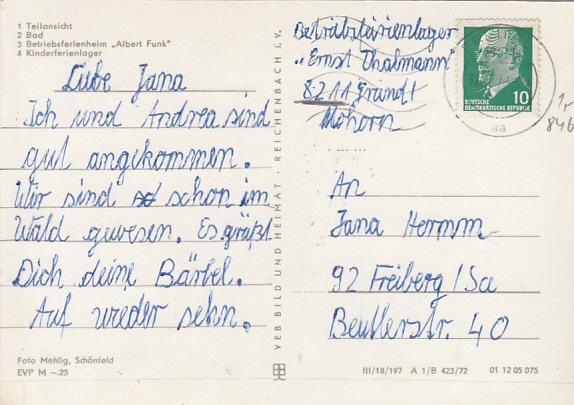 1 Teilansicht
2 Bad
3 Betriebsferienheim „Albert Funk"
4 Kinderferienlager
Liebe Jana
Ich und Andrea sind
gut angekommen.
Wir sind schon im
Wald gewesen. Es grüßt
Dich deine Bärbel.
Auf wieder sehn.
Foto Mehlig, Schönfeld
EVP M –.25
VEB BILD UND HEIMAT · REICHENBACH I. V.
Betriebsferienlager
„Ernst Thalmann"
8211 Grundt
Mohorn
10
DEUTSCHE
DEMOKRATISCHE REPUBLIK
aa
1,-
846
An
Jana Hermm
92 Freiberg/Sa
Beutlerstr. 40
III/18/197 A 1/B 423/72 01 12 05 075